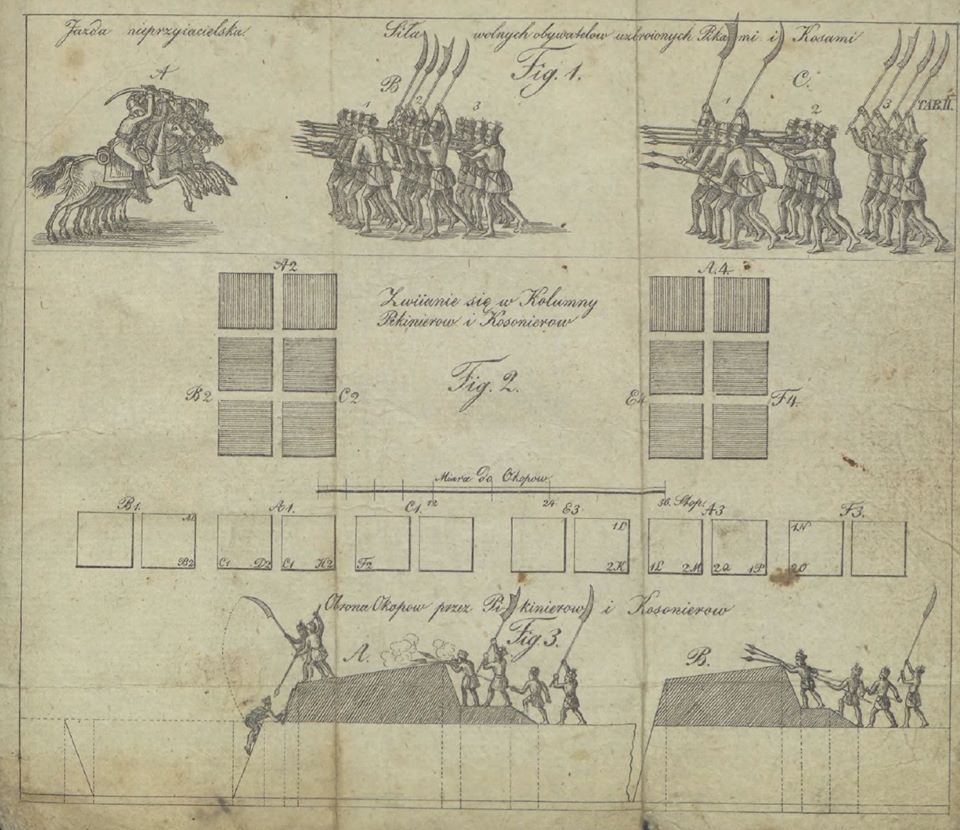 Jazda nieprzyiacielska
Siła wolnych obywatelow uzbroionych Pikami i Kosami
Fig. 1.
A
B
1 2 3
C.
1 2 3
TAB.II.
A2
A.4.
Zwiianie się w Kolumny
Pikinierow i Kosonierow
Fig. 2.
B2
C2
E4
F4.
Miara do Okopow
12 24 36. Stop.
B1. A1. C1. E3 A3 F3.
1D 1N
B2 C1 D2 C1 H2 F2 2K 1L 2M 2Q 1P 2O
Obrona Okopow przez Pikinierow i Kosonierow
Fig 3.
A.
B.